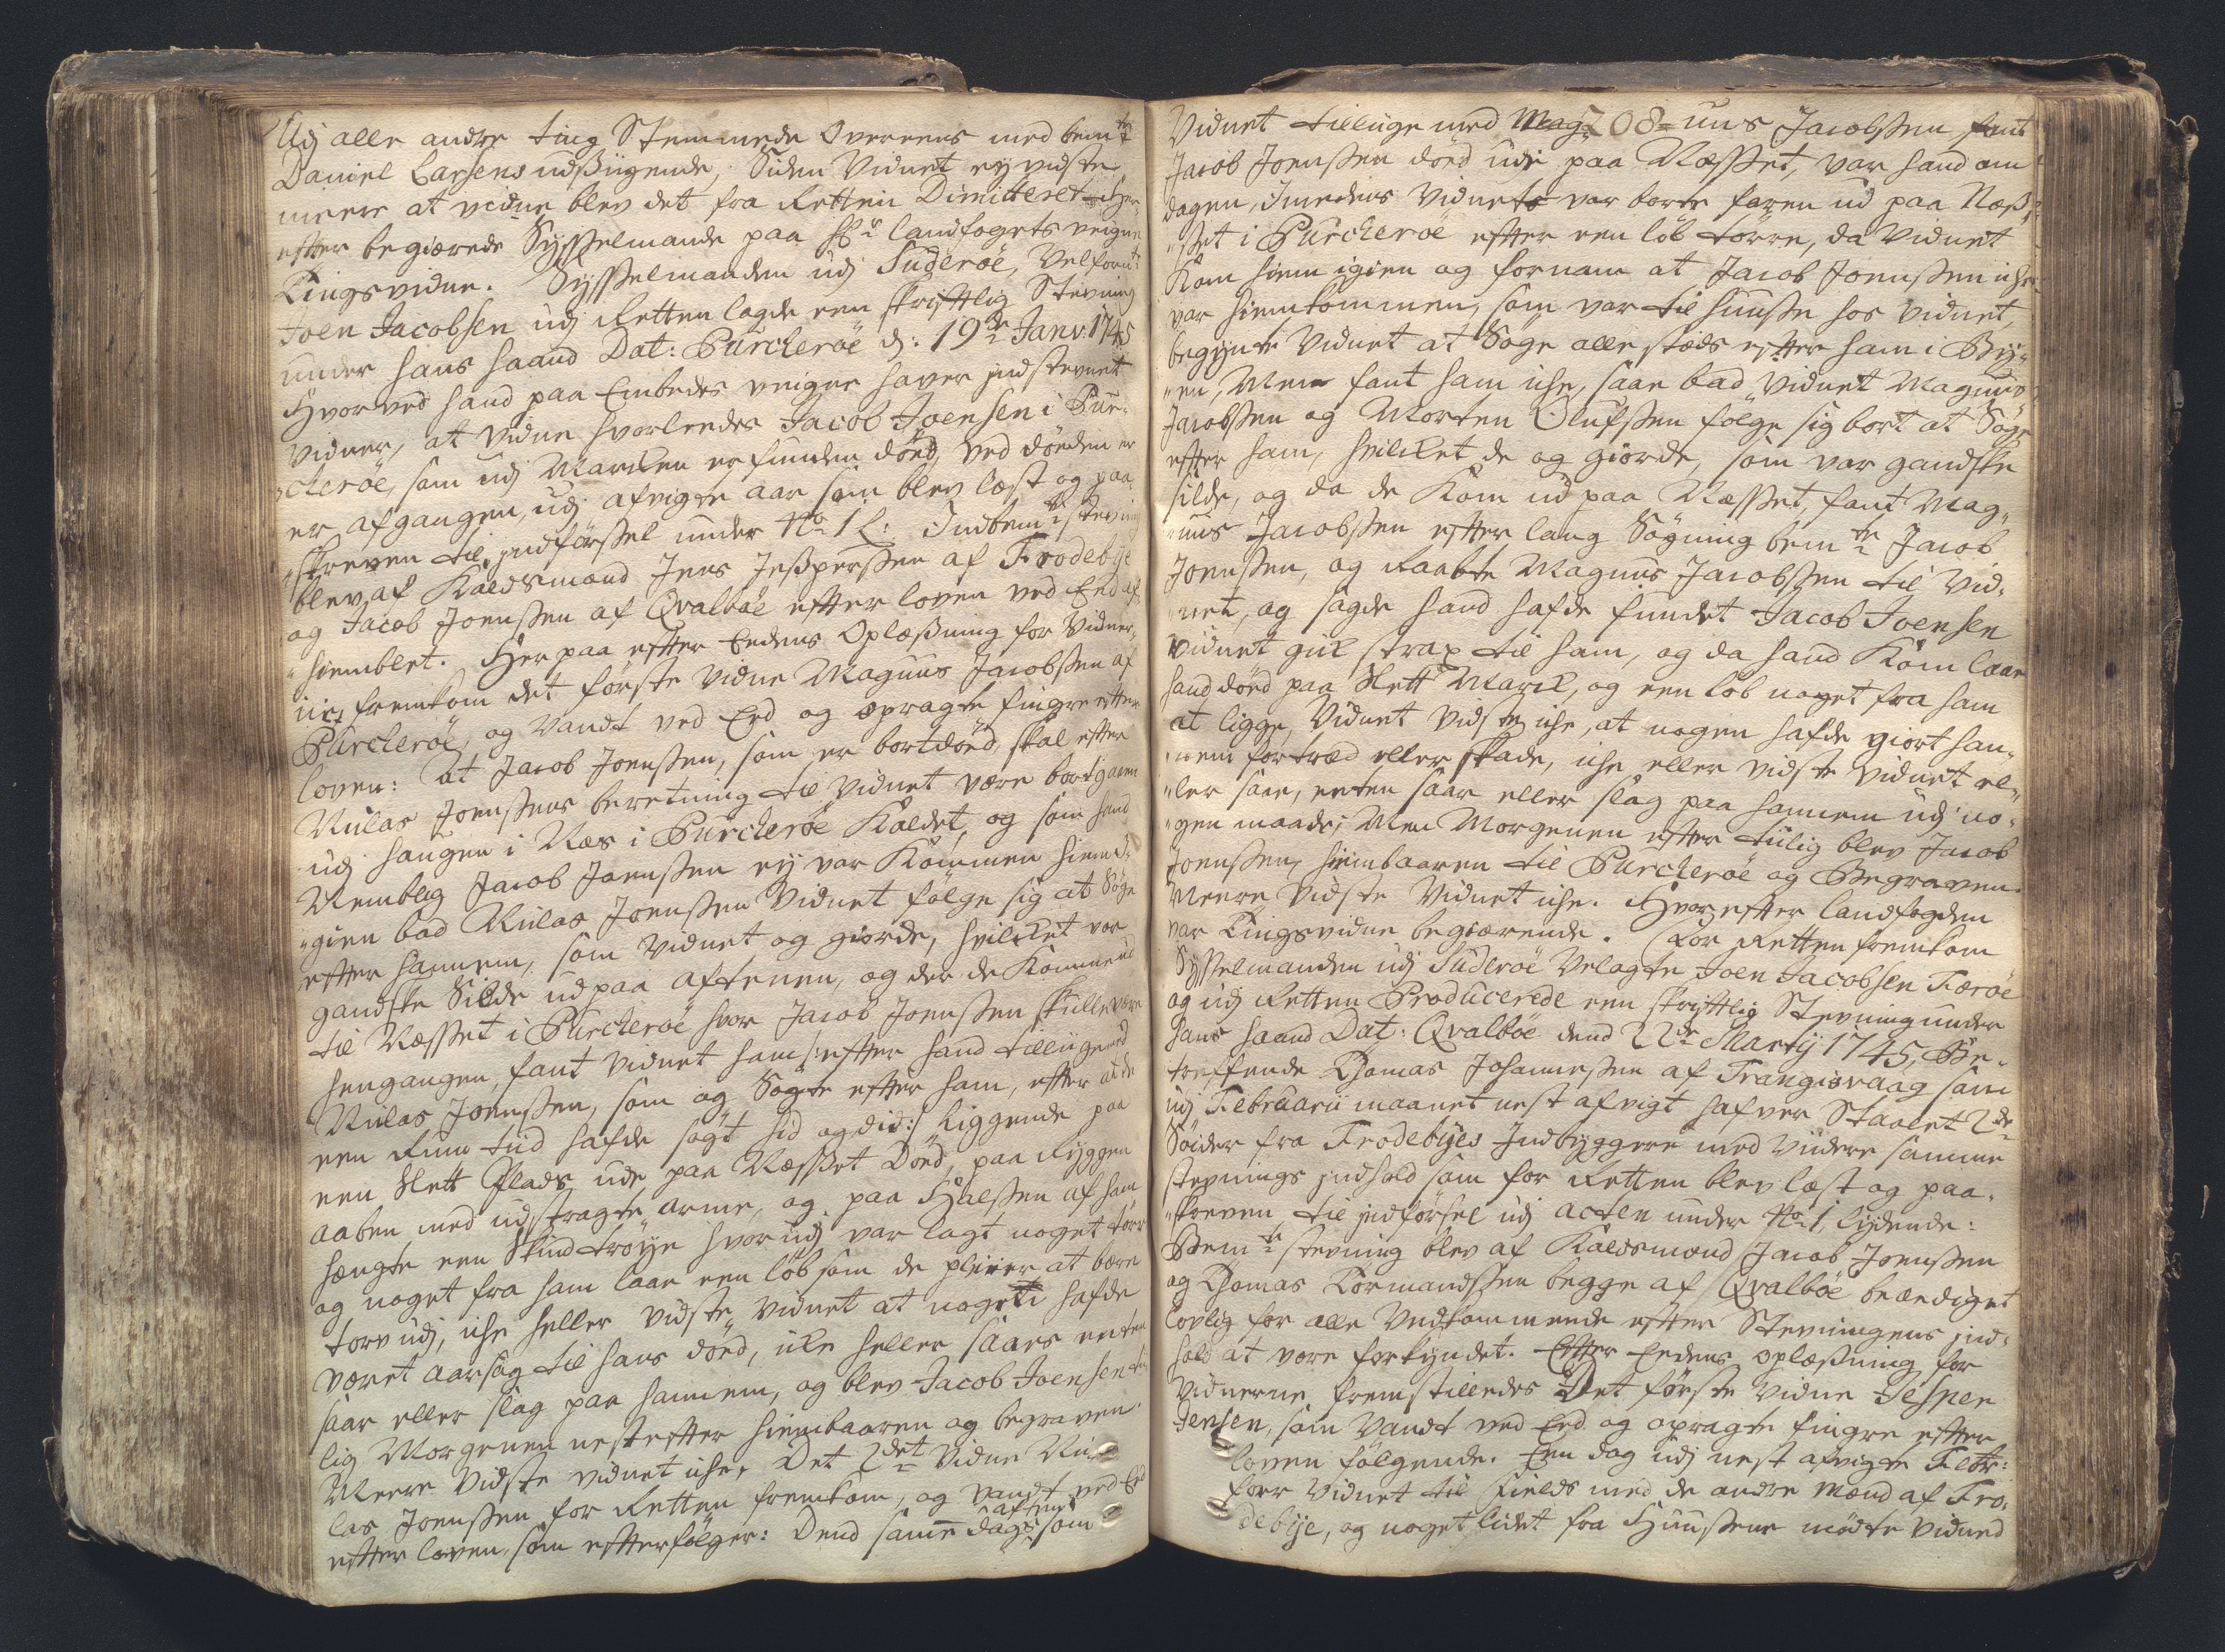 Udj alle andre ting Stemmede Overeens med bemte
Daniel Larsens udsßigende, Siden Vidnet ey vidste
meere at vidne blev det fra Retten Dimitteret Her
efter begiærede Sysselmande paa Hr landfogets veigne
Tingsvidne. Sysselmanden udj Suderöe, Velfornt:
Joen Jacobsen udj Retten lagde een skrifftlig Stevning
under hans haand Dat: Purckeröe d: 19de Janv: 1745
Hvorved hand paa Embedes veigne haver indstevnet
Vidner, at vidne hvorleedes Jacob Joensen i Pur-
ckeröe, som udj Marcken er funden död, ved döeden er
er afgangen, udj afvigte aar som blev læst og paa
skreven til indförßel under No 1 L: Indbemte Stevning
blev af Kaldsmænd Jens Jesperßen af Frodebye
og Jacob Joenßen af Qvalböe efter loven ved Eed af-
hiemblet. Her paa efter Eedens Oplæßning for Vidner-
ne, fremkom det förste Vidne Magnus Jacobßen af
Purckeröe, og Vandt ved Eed og opragte fingre efter
loven: At Jacob Joenßen, som er bortdöd skal efter
Niclas Joenßens beretning til Vidnet være bortgaaen
udj haugen i Næs i Purckeröe Kaldet, og som hand
Nemblig Jacob Joenßen ey var Kommen hiem i-
gien bad Niclas Joenßen Vidnet fölge sig at Söge
efter hannem, som Vidnet og giorde, hvilcket var
gandske Silde ud paa aftenen, og der de Komme ud
til Næsset i Purckeröe hvor Jacob Joenßen skulle være
hengangen, fant Vidnet ham /: efter hand tilliige med
Niclas Joenßen, som og Sögte efter ham, efter at de
een Rum tiid hafde sögt hid og did :/ liggende paa
een Slett Plads ude paa Næsset Död, paa Ryggen
aaben med udstragte arme, og paa Halßen af ham
hængte een Skind tröye hvor udj var lagt noget törv
og noget fra ham laae een löb som de pleier at bære
torv udj, iche heller vidste Vidnet at noget hafde
været aarsag til hans död, icke heller saaes enten
saar eller slag paa hannem, og blev Jacob Joensen ti-
lig Morgenen nest efter hiembaaren og begraven.
Meere Vidste vidnet iche. Det 2det Vidne Nic-
las Joenßen for Retten fremkom, og vandt ved Eed
efter loven, som efterfölger: Dend same dags aften som
Vidnet tilliige med Mag- 208 nus Jacobßen fant
Jacob Joenßen död ude paa Næsset, var hand om
dagen, Imedens Vidnet var borte faren ud paa Næs-
ßet i Purckeröe efter een löb törre, da Vidnet
Kom hiem igien og fornam at Jacob Joenßen iche
var hiemkommen, som var til huuße hos Vidnet,
begynte Vidnet at Söge alle stæds efter ham i Bÿ-
en, Men fant ham iche, saae bad Vidnet Magnus
Jacobßen og Morten Olufßen fölge sig bort at Söge
efter ham, hvilcket de og giorde, som var gandske
silde, og da de Kom ud paa Næsset, fant Mag-
nus Jacobßen efter lang Sögning bemte Jacob
Joenßen, og Raabte Magnus Jacobßen til Vid-
net, og sagde hand hafde fundet Jacob Joensen
Vidnet gick strax til ham, og da hand Kom laae
hand död paa Slett Marck, og een löb noget fra ham
at ligge, Vidnet Vidste iche, at nogen hafde giort han-
nem fortræd eller skade, iche eller vidste Vidnet el-
ler saae, enten saar eller slag paa hannem udj no-
gen maade; Men Morgenen efter tiilig blev Jacob
Joenßen, hiembaaren til Purckeröe og Begraven.
Meere Vidste Vidnet iche. Hvor efter landfogden
var Tingsvidne begiærende. For Retten fremkom
Sysselmanden udj Suderöe Velagte Joen Jacobsen Færöe
og udj Retten Producerede een skrifftlig Stevning under
hans haand Dat: Qvalböe dend 22de Martij 1745, Be-
treffende Thomas Johannesßen af Trangisvaag som
udj Februarii maanet nest afvigt hafver Staalet 2de
Söider fra Frodebÿes Indbyggere med Viidere samme
stevnings indhold som for Retten blev læst og paa-
skreven til indförsel udj acten under No 1, lydende:
Bemte stevning blev af Kaldsmænd Jacob Joenßen
og Thomas Tormandßen begge af Qvalböe beædiget
lovlig for alle Vedkommende efter Stevningens ind-
hold at være forkyndet. Efter Eedens oplæßning for
Vidnerne fremstilledes Det förste Vidne Jespen
Jensen, som Vandt ved Eed og opragte fingre efter
loven fölgende. Een dag udj nest afvigte Febr:
foer Vidnet til Fields med de andre Mænd af Fro-
debÿe, og noget lidet fra Huußene mödte Vidned